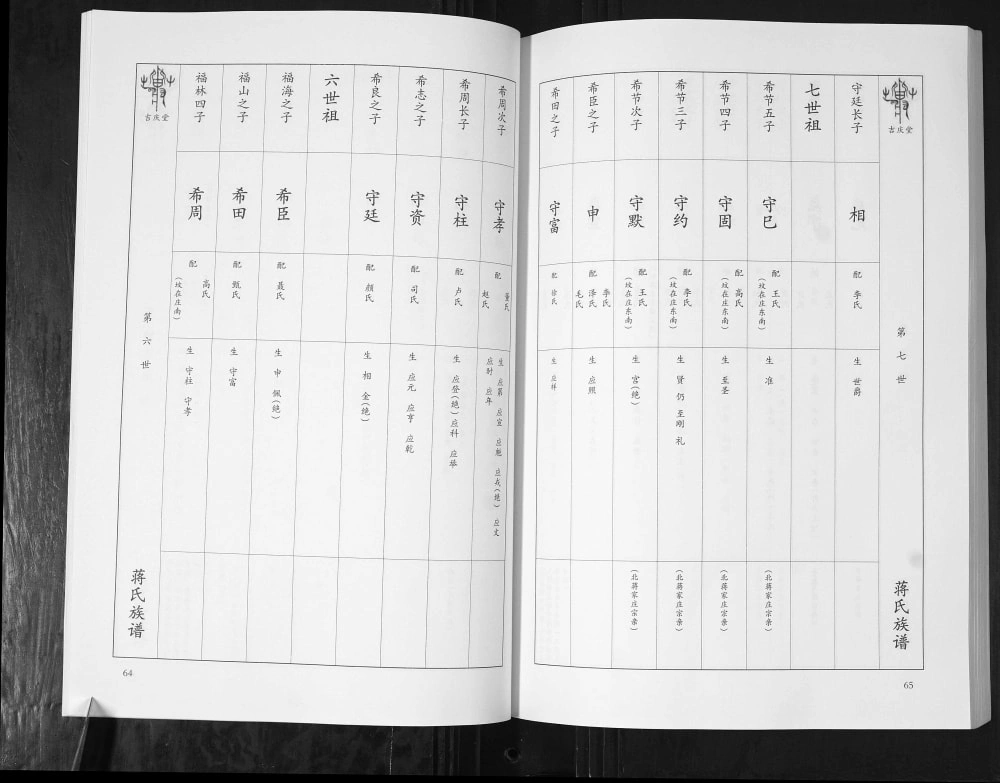 吉庆堂
第六世
蒋氏族谱
64
福林四子
希周
配 高氏
（坟在庄南）
生 守柱 守孝
福山之子
希田
配 甄氏
生 守富
福海之子
希臣
配 聂氏
生 申 佩（绝）
六世祖
希良之子
守廷
配 颜氏
生 相 金（绝）
希志之子
守资
配 司氏
生 应元 应亨 应乾
希周长子
守柱
配 卢氏
生 应登（绝） 应科 应
希周次子
守孝
配 董氏
赵氏
生 应第 应宣 应魁 应戎（绝） 应文
应时 应年
希田之子
守富
配 徐氏
生 应祥
希臣之子
申
配 泽氏 李氏
毛氏
生 应照
希节次子
守默
配 王氏
（坟在庄东南）
生 宫（绝）
（北蒋家庄宗亲）
希节三子
守约
配 李氏
（坟在庄东南）
生 贤 仍 至刚 礼
（北蒋家庄宗亲）
希节四子
守固
配 高氏
（坟在庄东南）
生 至圣
（北蒋家庄宗亲）
希节五子
守巳
配 王氏
（坟在庄东南）
生 准
（北蒋家庄宗亲）
七世祖
守廷长子
相
配 李氏
生 世爵
吉庆堂
第七世
蒋氏族谱
65